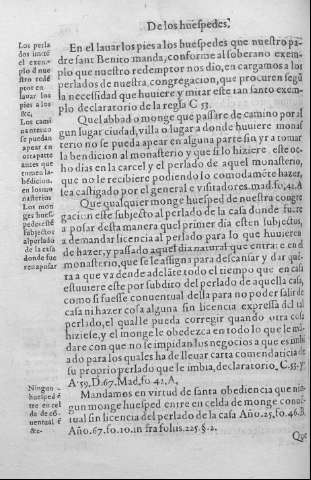 De los huespedes.
Los perla
dos imitē
el exem-
plo d̄ nue
stro redē
ptor en
lauar los
pies a los
&c,
Los cami
nantes no
se puedan
apear en
otra parte
antes que
tomen la
bēdicion.
en los mo
nasterios
Los mon
ges hues-
pedes estē
subjectos
al perlado
de la casa
donde fue
ren a posar
Ningun
huesped ē
tre en cel
da de cō-
uentual ē
&c.
En el lauar los pies a los huespedes que nuestro pa-
dre sant Benito manda, conforme al soberano exem-
plo que nuestro redemptor nos dio, encargamos a los
perlados de nuestra congregacion, que procuren segū
la necesidad que huuiere y mitar este tan santo exem-
plo declaratorio de la regla C 53.
Que l abbad o monge que passare de camino por al
gun lugar ciudad, villa o lugar a donde huuiere monas
terio no se pueda apear en alguna parte sin yr a tomar
la bendicion al monasterio y que si lo hiziere este oc-
ho dias en la carcel y el perlado de aquel monasterio,
que no le recibiere podiendo lo comodamēte hazer,
sea castigado por el general e visitadores. mad. fo, 41. A
Que qualquier monge huesped de nuestra congre
gacion este subjecto al perlado de la casa donde fuere
a posar desta manera que l primer dia esten subjectos,
a demandar licencia al perlado para lo que huuieren
de hazer, y passado aquel dia natural que entra: en el
monasterio, que se le assigna para descansar y dar quē-
ta a que va dende adelāte todo el tiempo que en casa
estuuiere este por subdito del perlado de aquella casa,
como si fuesse conuentual della para no poder salir de
casa ni hazer cosa alguna sin licencia expressa del tal
perlado, el qual le pueda corregir quando otra cosa
hiziese, y el monge le obedezca en todo lo que le mā-
dare con que no se impidan los negocios a que es imbi
ado para los quales ha de lleuar carta comendaticia de
su proprio perlado que le imbia, declaratorio, C. 53. y
A. 59, D. 67. Mad, fo. 42, A,
Mandamos en virtud de santa obediencia que nin-
gun monge huesped entre en celda de monge conuē
tual sin licencia del perlado de la casa Año. 25, fo. 46. B.
Año. 67. fo. 10. in fra folus. 225. §. 2.
Que